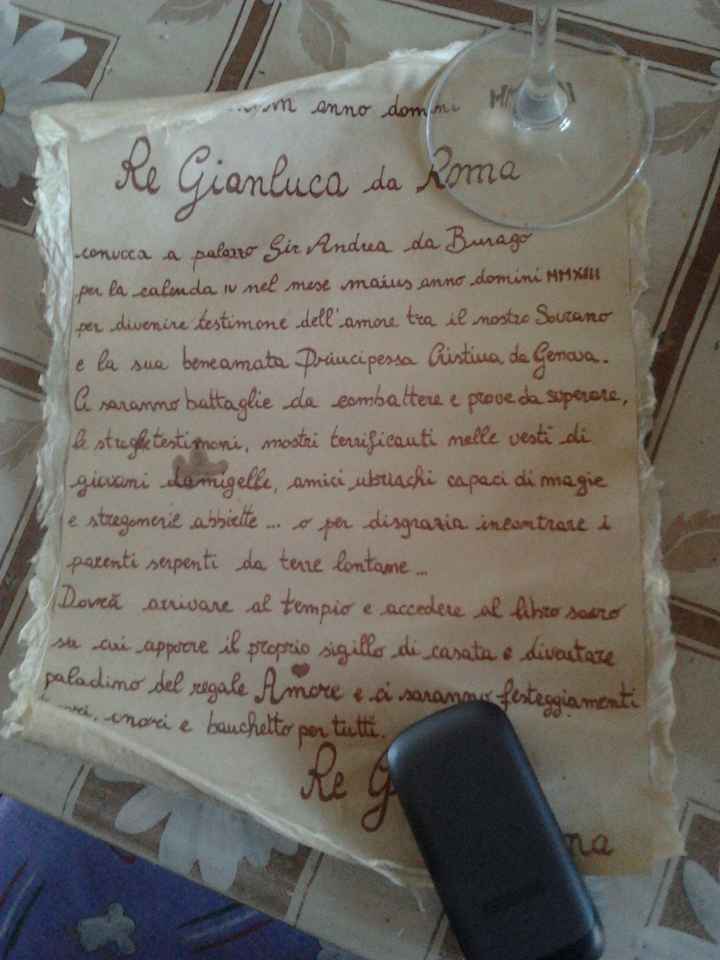 anno domini MM
Re Gianluca da Roma
convoca a palazzo Sir Andrea da Burago
per la calenda IV nel mese maius anno domini MMXIII
per divenire testimone dell'amore tra il nostro Sovrano
e la sua beneamata Principessa Cristina da Genova.
Ci saranno battaglie da combattere e prove da superare,
le streghe testimoni, mostri terrificanti nelle vesti di
giovani damigelle, amici ubriachi capaci di magie
e stregonerie abbiette ... o per disgrazia incontrare i
parenti serpenti da terre lontane ...
Dovrà arrivare al tempio e accedere al libro sacro
su cui apporre il proprio sigillo di casata e diventare
paladino del regale Amore e ci saranno festeggiamenti
onori e banchetto per tutti.
Re G